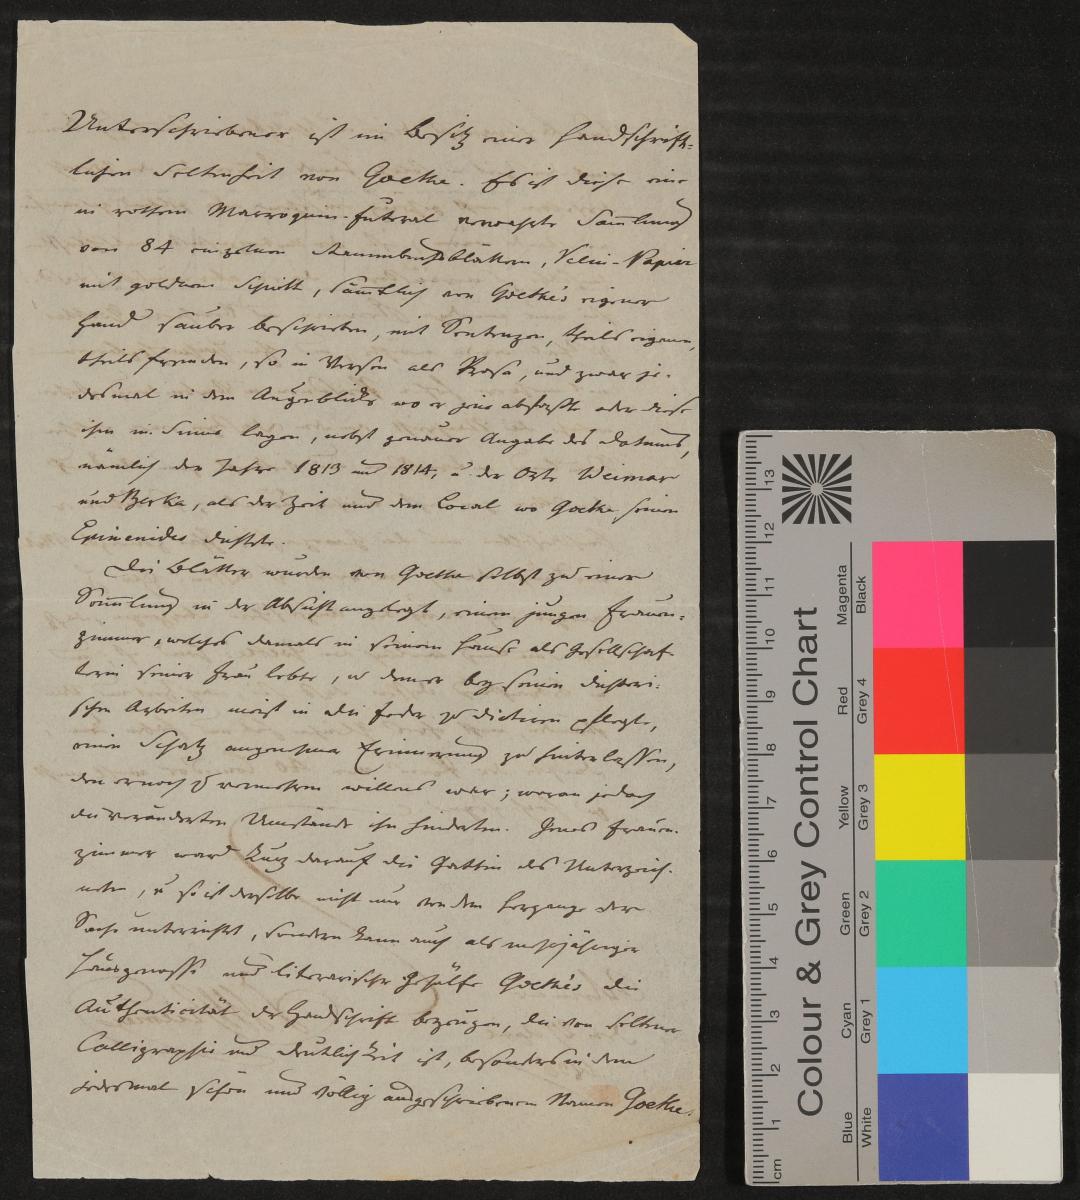 Unterschriebener ist im Besitz einer handschrift-
lichen Seltenheit von Goethe. Es ist diese eine
in rothem Marroquin-Futteral verwahrte Sammlung
von 84 einzelnen Stammbuchsblättern, Velin-Papier
mit goldnem Schnitt, sämtlich von Goethe's eigener
Hand sauber beschrieben, mit Sentenzen, theils eignen,
theils fremden, so in Versen als Prosa, und zwar je-
desmal in dem Augenblicke wo er jene abfaßte oder diese
ihm im Sinne lagen, nebst genauer Angabe des Datums,
nämlich der Jahre 1813 und 1814, u. der Orte Weimar
und Berka, als der Zeit und dem Local wo Goethe seinen
Epimenides dichtete.
Die Blätter wurden von Goethe selbst zu einer
Sammlung in der Absicht angelegt, einem jungen Frauen-
zimmer, welches damals in seinem Hause als Gesellschaf-
terin seiner Frau lebte, u. dem er bey seinen dichteri-
schen Arbeiten meist in die Feder zu dictiren pflegte,
einen Schatz angenehmer Erinnerung zu hinterlassen,
den er noch zu vermehren willens war; woran jedoch
die veränderten Umstände ihn hinderten. Jenes Frauen-
zimmer ward kurz darauf die Gattin des Unterzeich-
neten, u so ist derselbe nicht nur von dem Hergange der
Sache unterrichtet, sondern kann auch als mehrjähriger
Hausgenosse und literarischer Gehülfe Goethe's die
Authenticität der Handschrift bezeugen, die von seltener
Calligraphie und Deutlichkeit ist, besonders in dem
jedesmal schön und völlig ausgeschriebenen Namen Goethe.
Colour & Grey Control Chart
Blue Cyan Green Yellow Red Magenta
White Grey 1 Grey 2 Grey 3 Grey 4 Black
cm 1 2 3 4 5 6 7 8 9 10 11 12 13